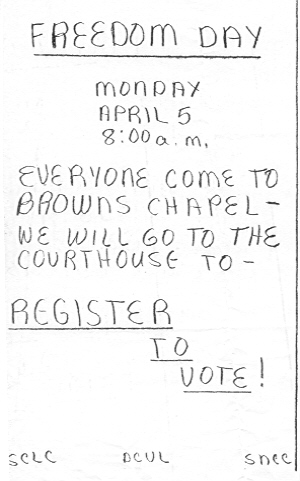 FREEDOM DAY
MONDAY
APRIL 5
8:00 a.m.
EVERYONE COME TO
BROWNS CHAPEL -
WE WILL GO TO THE
COURTHOUSE TO -
REGISTER
TO
VOTE!
SCLC DCVL SNCC